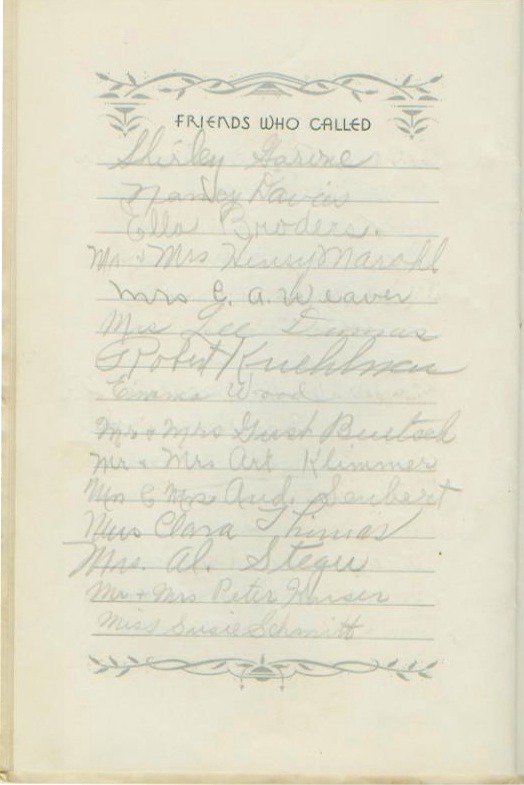 FRIENDS WHO CALLED
Shirley
Nancy Davis
Ella Broders.
Mr & Mrs Henry Marohl
Mrs C. A. Weaver
Mrs Lee Dumas
Robert Kuehlman
Emma Wood
Mr & Mrs Gust Buetsch
Mr & Mrs Art Klimmer
Mr & Mrs And. Seubert
Mrs Clara Thomas
Mrs. Al. Steger
Mr + Mrs Peter Kaiser
Miss Susie Schmitt